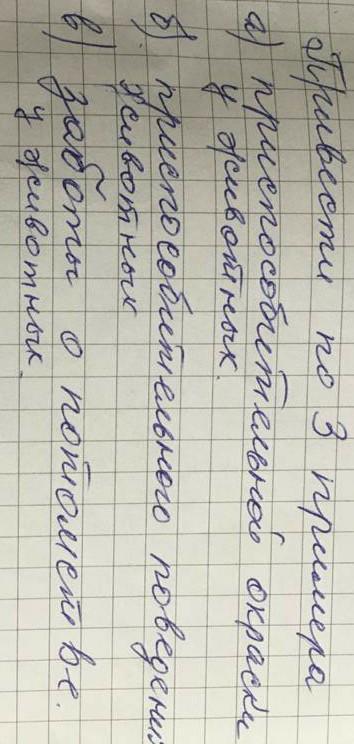 Привести по 3 примера
а) приспособительной окраски
у животных.
б) приспособительного поведения
животных
в) заботы о потомстве.
у животных.